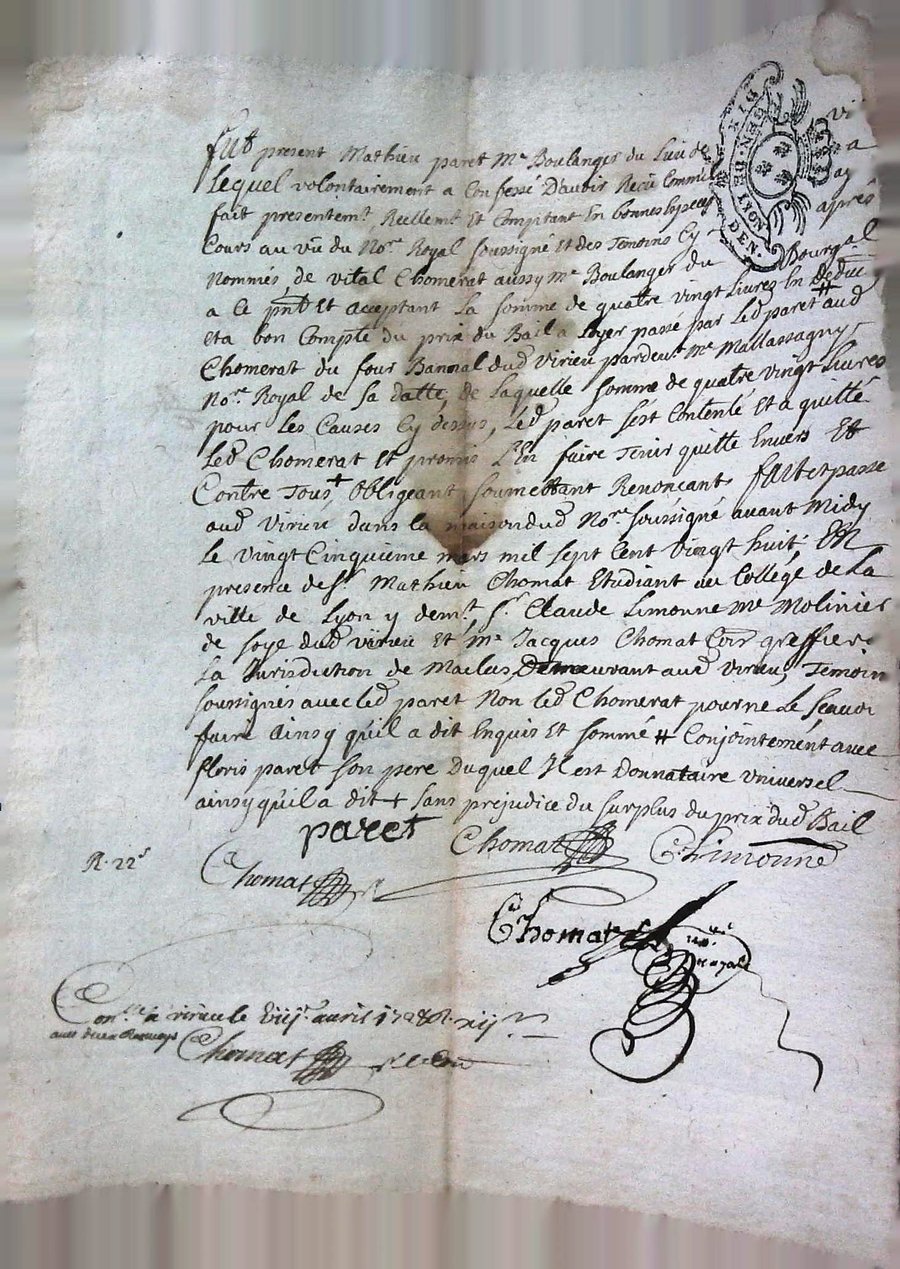 GEN. DE LYON
SIX DEN.
Fut present Mathieu paret Me Boulanger du Lieu de vi
Lequel volontairement a Confessé D'avoir Reçu Comme
fait presentemt Reellemt Et Comptant En bonnes Especes ay
Cours au vû du Nore Royal soussigné Et des Temoins Cy après
Nommés, de vital Chomerat aussy Me Boulanger du Bourg
a ce pnt Et aceptant La somme de quatre vingt Livres En Deduc
Et a bon Compte du prix du Bail a Loyer passé par Led paret aud
Chomerat du four Bannal dud Virieu pardevt Me Mallassagny
Nore Royal de sa datte, de Laquelle somme de quatre vingt Livres
pour Les Causes Cy dessus, Led paret s'est Contenté Et a quitté
Led Chomerat Et promis L'En faire Tenir quitte Envers Et
Contre Tous + Obligeant soumettant Renonçant fait et passé
aud Virieu dans la maison dud Nore soussigné avant Midy
Le Vingt Cinquieme mars mil sept Cent Vingt huit, En
presence de sr Mathieu Chomat Etudiant au College de La
ville de Lyon y demt, sr Claude Limonne Me Molinier
de soye dud Virieu Et Me Jacques Chomat greffier
La Jurisdiction de Maclas, Demeurant aud Virieu, Temoin
soussignés avec Led paret Non Led Chomerat pour ne Le sçavoi
faire Ainsy qu'il a dit Enquis Et sommé # Conjointement avec
floris paret son pere Duquel Il est Donnataire Universel
ainsy qu'il a dit + sans prejudice du surplus du prix dud Bail
paret Chomat C. Limonne
R. 22s
Chomat
Chomat
nore
Royal
Conlle a virieu le Viije avril 1728 R. xijs
avec deux Renvoys
Chomat